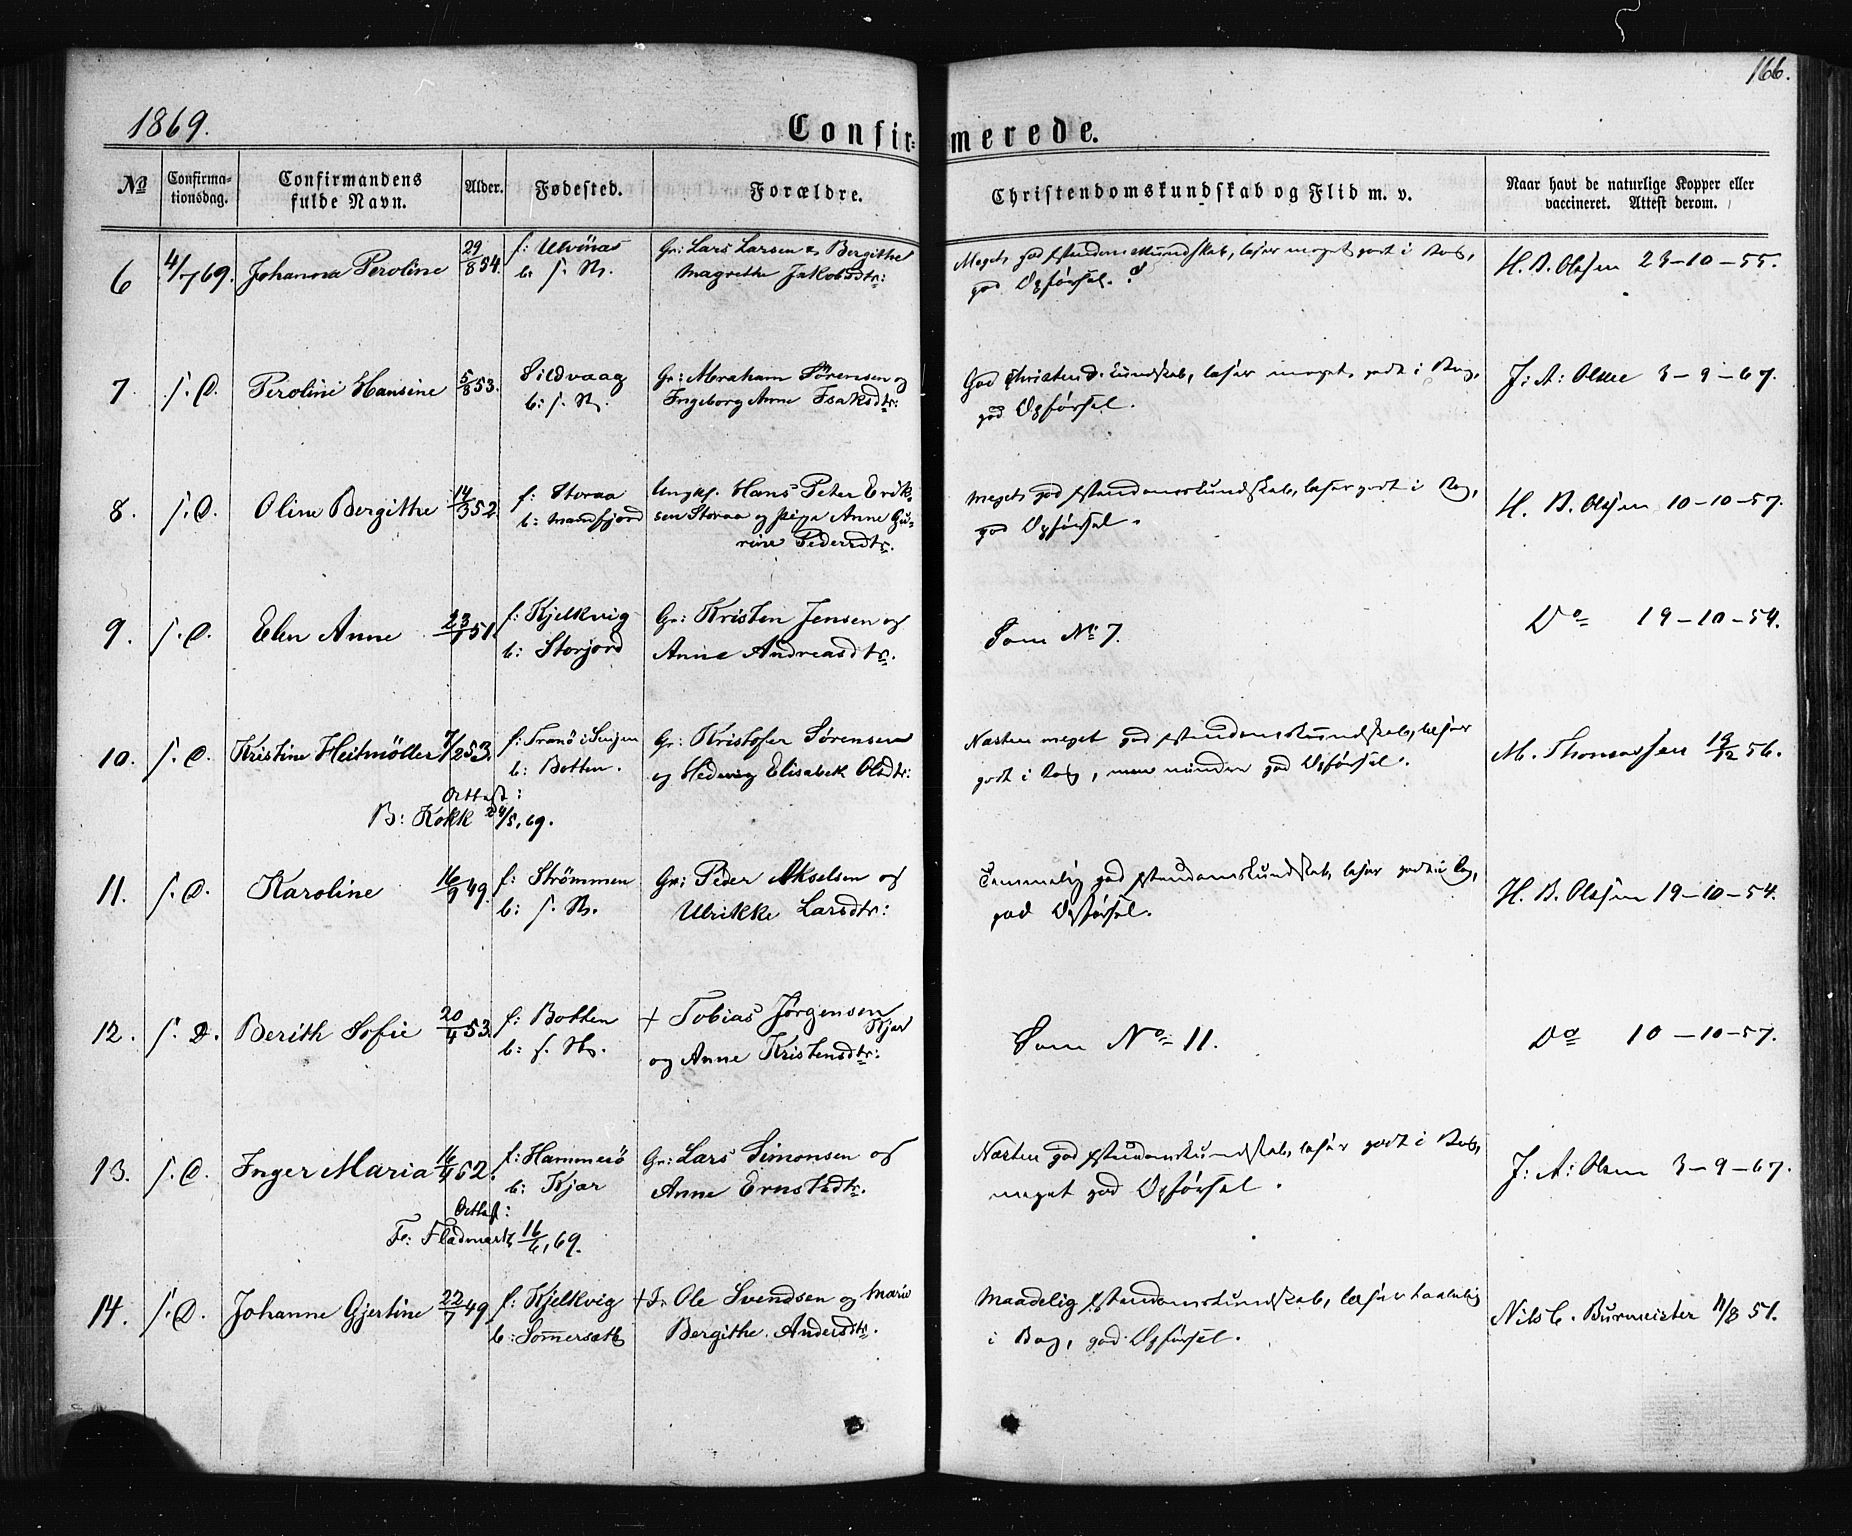 166.
1869.
Confirmerede.
No
Confirmationsdag.
Confirmandens fulde Navn.
Alder.
Fødested.
Forældre.
Christendomskundskab og Flid m. v.
Naar havt de naturlige Kopper eller vaccineret. Attest derom.
6 4/7 69. Johanna Peroline 29/8 54. f: Ulvönæs Gr: Lars Larsen & Bergitthe Meget god Kristendomskundskab, læser meget godt i Bog, H. B. Olsen 23-10-55.
b: s. St. Magrethe Jakobsdtr: god Opførsel.
7. s. D. Peroline Hansine 5/8 53. Sildvaag Gr: Abraham Sørensen og God Christend. kundskab, læser meget godt i Bog, J: A: Olsen 3-9-67.
b: s. St. Ingeborg Anne Isaksdtr: god Opførsel.
8. s. D. Oline Bergitthe 14/3 52. f: Storaa Ungkf. Hans Peter Erik- Meget god Kristendomskundskab, læser godt i Bog, H. B. Olsen 10-10-57.
b: Mandfjord sen Storaa og Pige Anne Gu- god Opførsel.
rine Pedersdtr.
9. s. D. Elen Anne 23/9 51. f: Kjelkvig Gr: Kristen Jensen og Som No 7. Do 19-10-54.
b: Storjord Anne Andreasdtr.
10. s. D. Kristine Heitmöller 7/2 53. f: Tranö i Senjen Gr: Kristofer Sørensen Næsten meget god Kristendomskundskab, læser M. Thomassen 19/12 56.
b: Botten. og Hedevig Elisabeth Olsdtr: godt i Bog, men mindre god Opførsel.
Attest:
B: Kokk 24/5, 69.
11. s. D. Karoline 16/9 49. f: Strömmen Gr: Peder Akselsen og Temmelig god Kristendomskundskab, læser godt i Bog, H. B. Olsen 19-10-54.
b: s. St. Ulrikke Larsdtr: god Opførsel.
12. s. D. Berith Sofie 20/4 53. f: Botten + Tobias Jørgensen Som No 11. Do 10-10-57.
Kjær
b: s. St. og Anne Kristensdtr:
13. s. D. Inger Maria 16/4 52. f: Hammerö Gr: Lars Simonsen og Næsten god Kristendomskundskab, læser godt i Bog, J: A: Olsen 3-9-67.
b: Kjær Anne Ernstsdtr. meget god Opførsel.
Attest:
Fr: Fladmark 16/6, 69.
14. s. D. Johanne Gjertine 22/7 49. f: Kjelkvig + Fr Ole Svendsen og Marie Maadelig Kristendomskundskab, læser taalelig Nils C. Burmeister 11/8 51.
b: Sommersæth Bergithe Andersdtr. i Bog, god Opførsel.